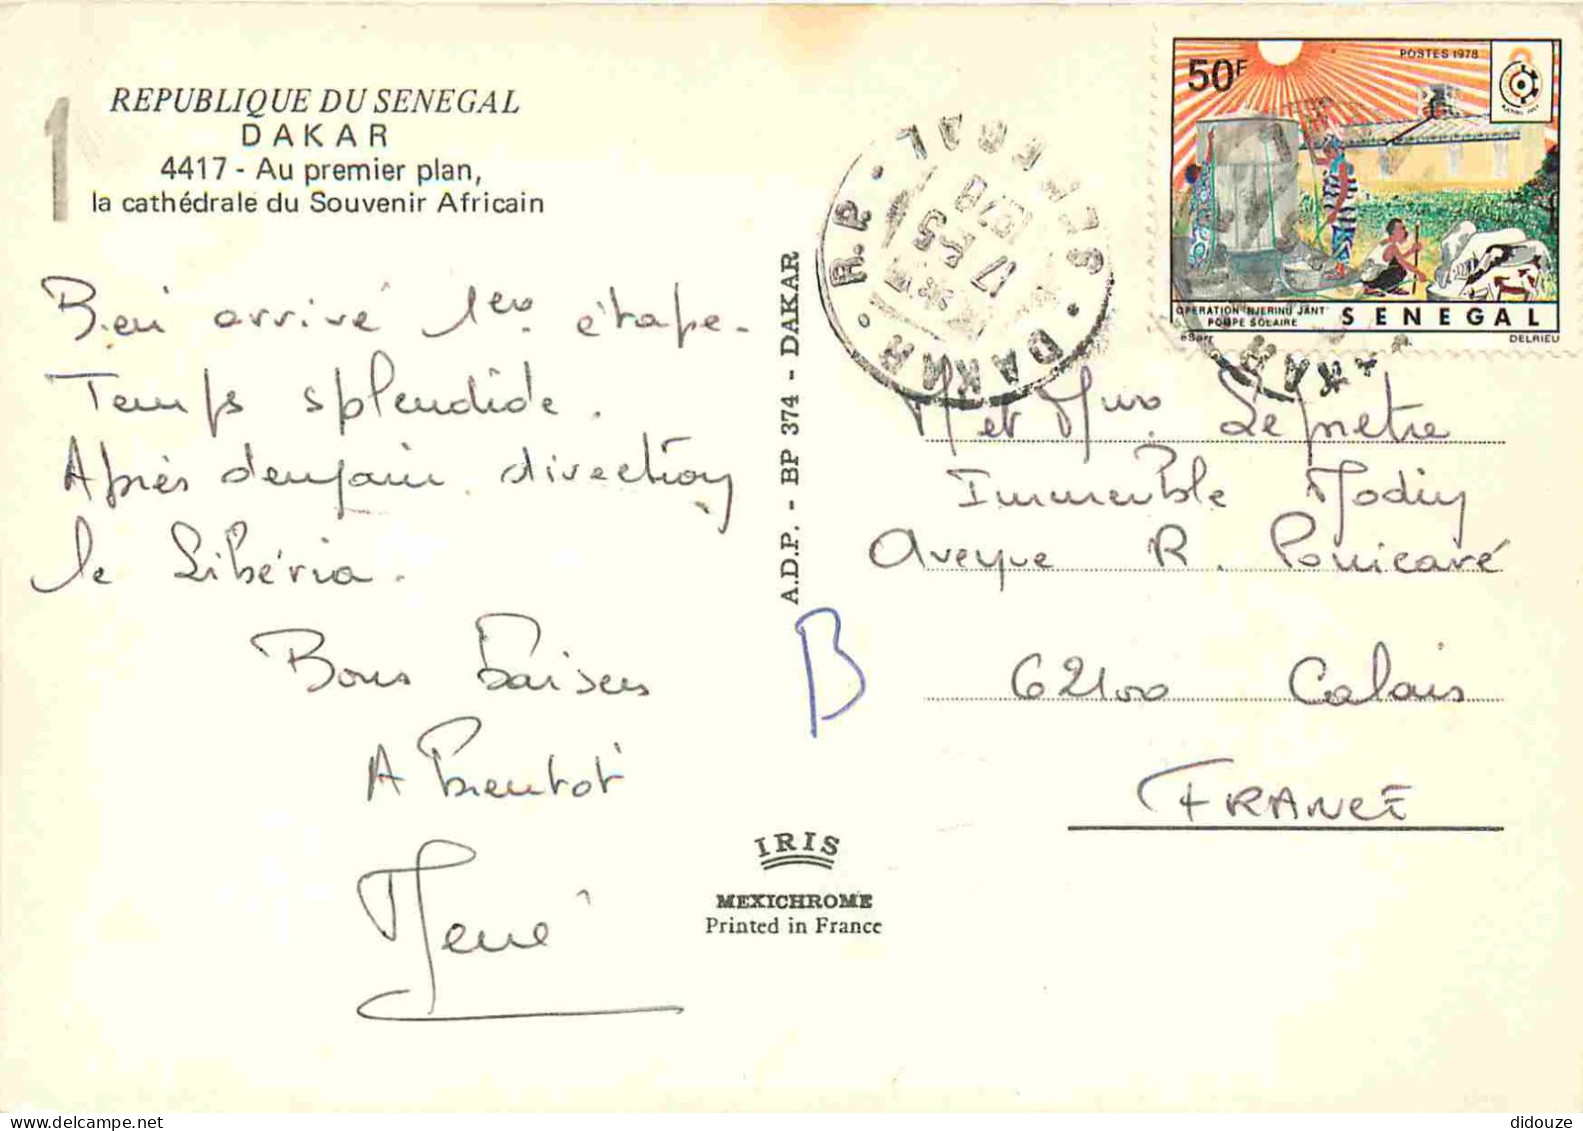 REPUBLIQUE DU SENEGAL
DAKAR
4417 - Au premier plan,
la cathédrale du Souvenir Africain
1
Bien arrivé 1er étape.
Temps splendide.
Après demain direction
le Libéria.
Bons Baisers
A Bientot
René
A.D.P. - BP 374 - DAKAR
B
IRIS
MEXICHROME
Printed in France
DAKAR R.P.
SENEGAL
17
1978
50F
POSTES 1978
OPERATION 'NJERINU JANT'
POMPE SOLAIRE
SENEGAL
DELRIEU
M et Mme Lepretre
Immeuble Rodin
Avenue R. Poincaré
62100 Calais
FRANCE
didouze